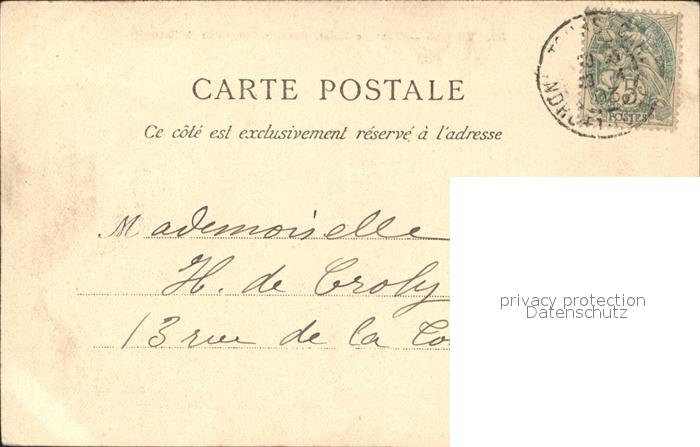 CARTE POSTALE
Ce côté est exclusivement réservé à l'adresse
POSTES
Mademoiselle
H. de Croly
13 rue de la
privacy protection
Datenschutz